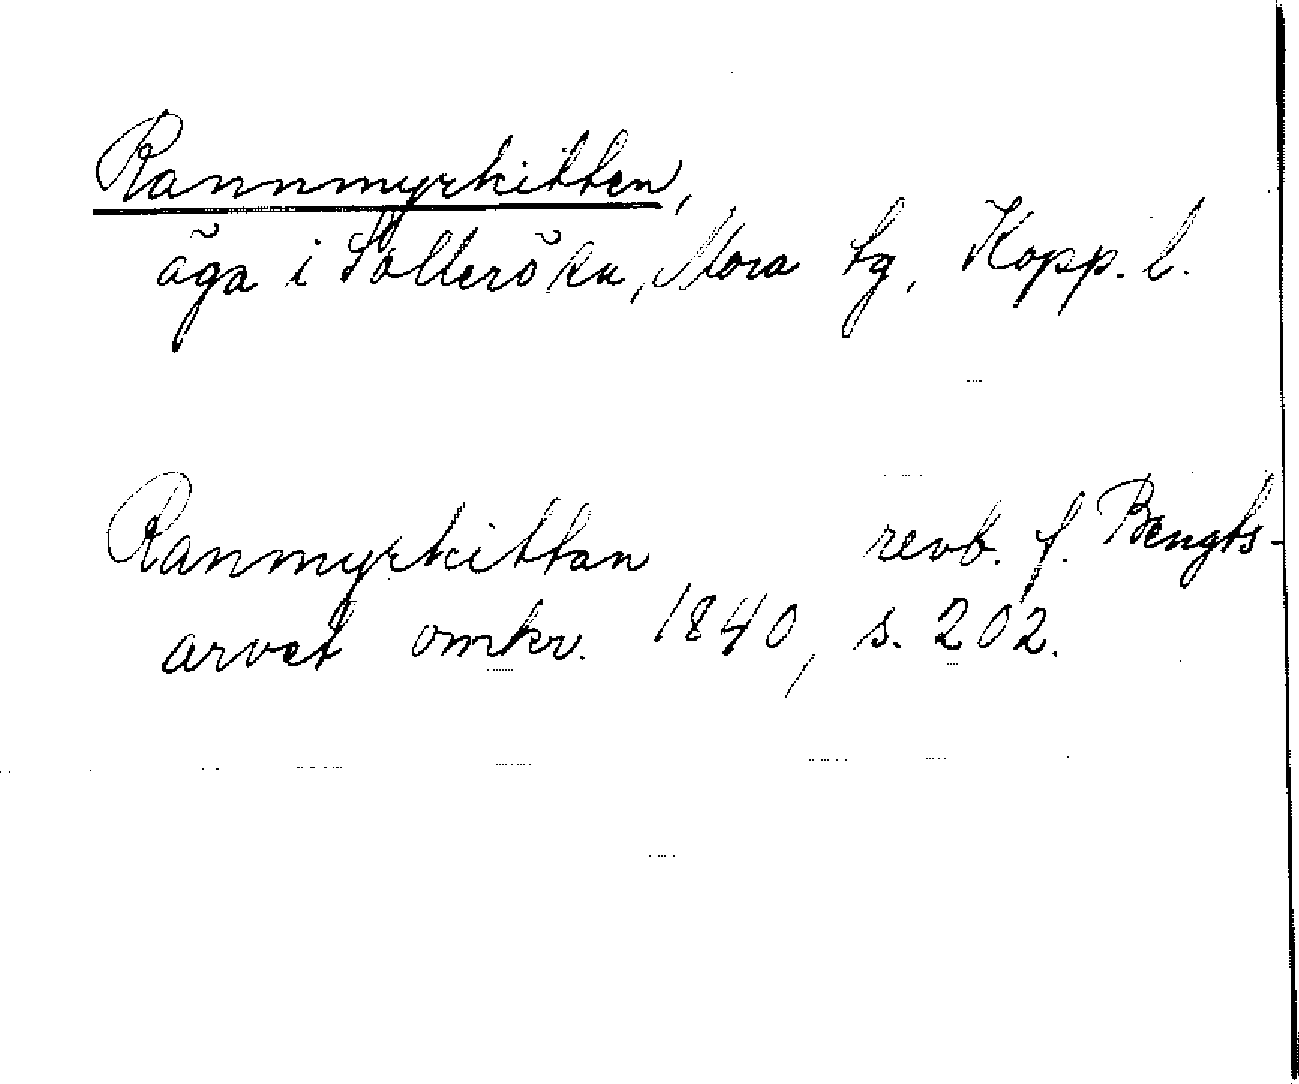 Rannmyrkitten,
äga i Sollerö sn, Mora tg, Kopp. l.
Ranmyrkittan revb. f. Bengts-
arvet omkr. 1840, s. 202.